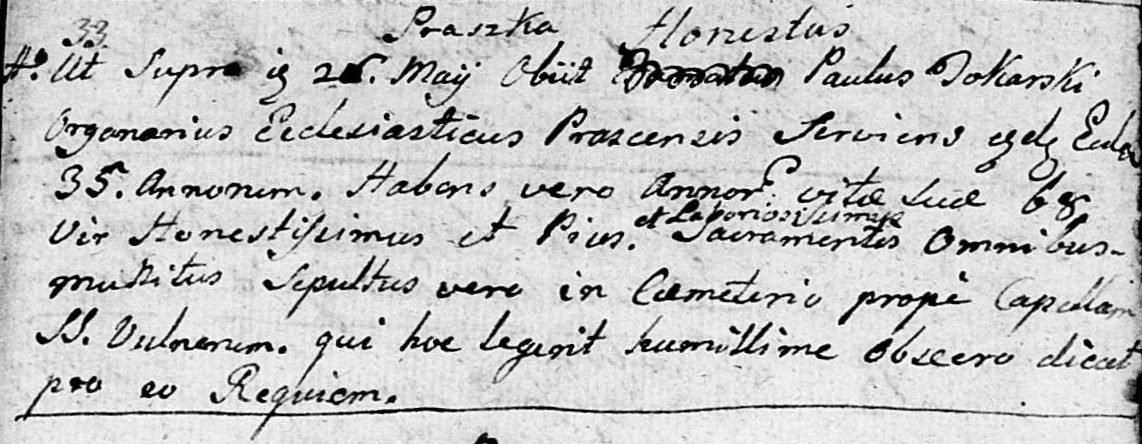 33. Praszka Honestus
Ut Supra 25. Maÿ Obiit Paulus Tokarski
Organarius Ecclesiasticus Prascensis Serviens
35. Annorum. Habens vero Annor. vitæ suæ 68
et Laboriosissimus
Vir Honestissimus et Pius. Sacramentis Omnibus
munitus Sepultus vero in Cæmeterio propè Capellam
SS. Vulnerum. qui hoc legerit humillime obsecro dicat
pro eo Requiem.